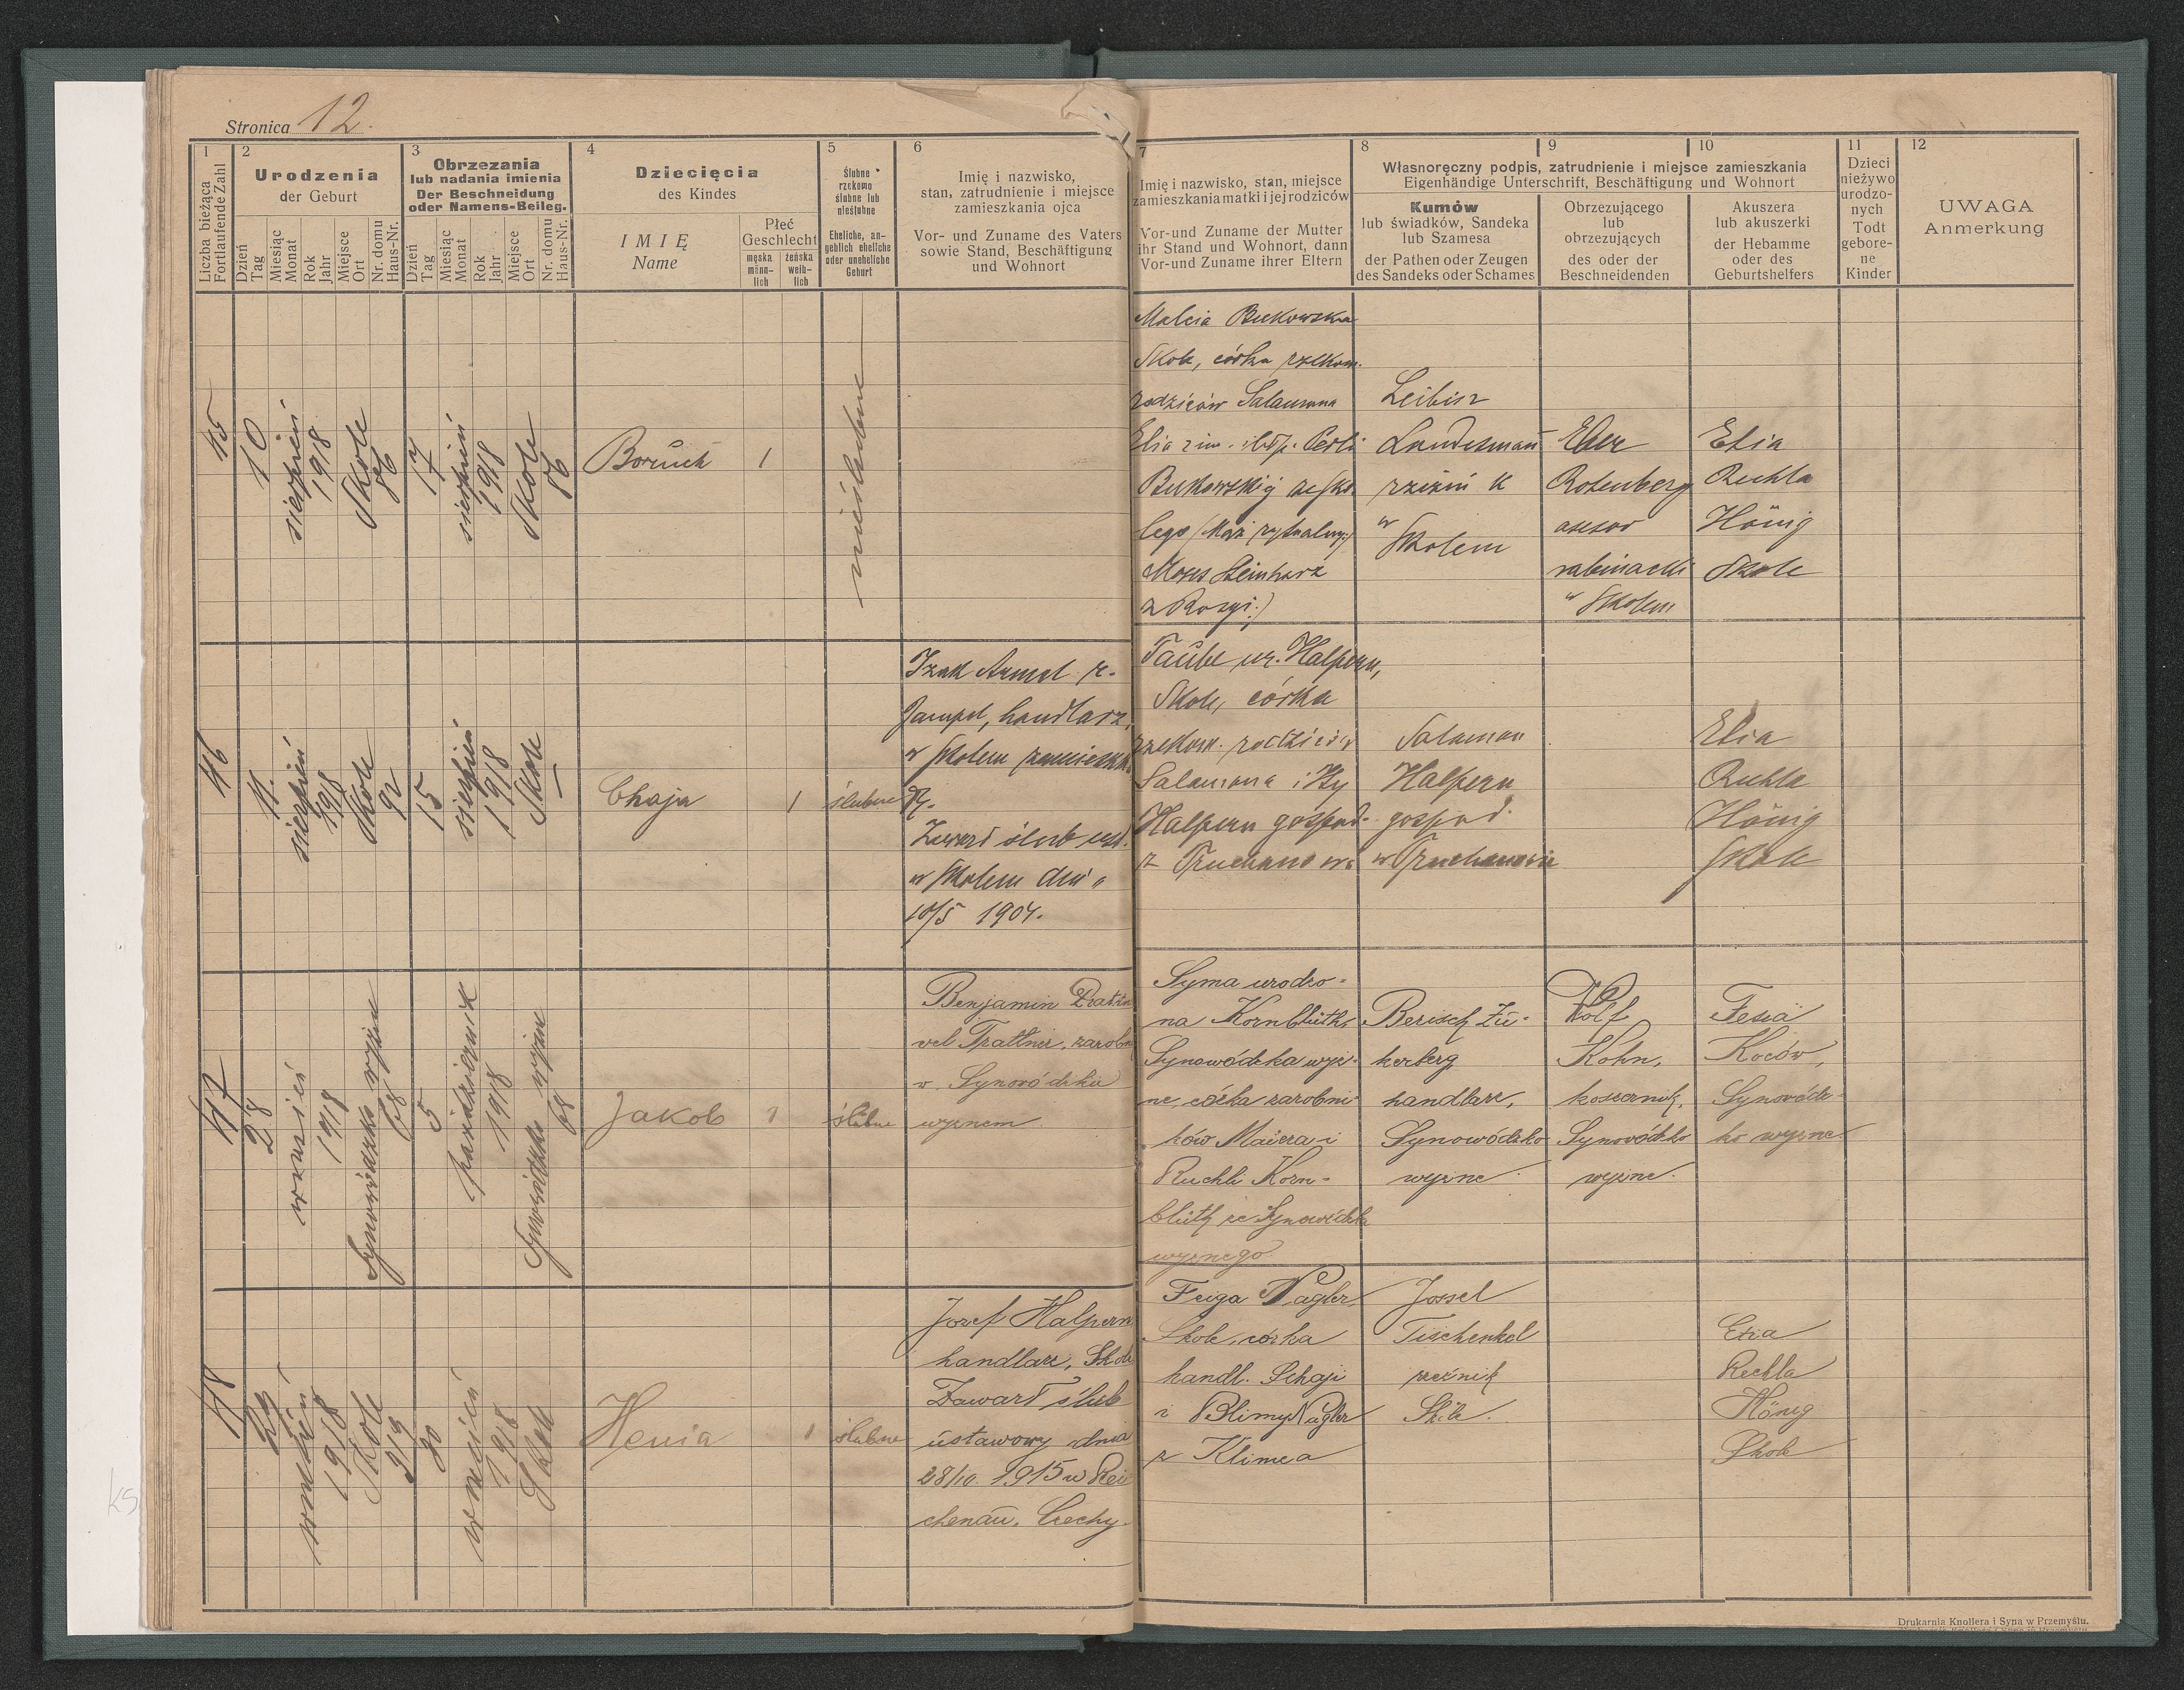 Stronica 12.
1
Liczba bieżąca
Fortlaufende Zahl
2
Urodzenia
der Geburt
Dzień
Tag
Miesiąc
Monat
Rok
Jahr
Miejsce
Ort
Nr. domu
Haus-Nr.
3
Obrzezania
lub nadania imienia
Der Beschneidung
oder Namens-Beileg.
Dzień
Tag
Miesiąc
Monat
Rok
Jahr
Miejsce
Ort
Nr. domu
Haus-Nr.
4
Dziecięcia
des Kindes
IMIĘ
Name
Płeć
Geschlecht
męska
männ-
lich
żeńska
weib-
lich
5
Ślubne
rzekomo
ślubne lub
nieślubne
Eheliche, an-
geblich eheliche
oder uneheliche
Geburt
6
Imię i nazwisko,
stan, zatrudnienie i miejsce
zamieszkania ojca
Vor- und Zuname des Vaters
sowie Stand, Beschäftigung
und Wohnort
7
Imię i nazwisko, stan, miejsce
zamieszkania matki i jej rodziców
Vor- und Zuname der Mutter
ihr Stand und Wohnort, dann
Vor-und Zuname ihrer Eltern
8
9
10
Własnoręczny podpis, zatrudnienie i miejsce zamieszkania
Eigenhändige Unterschrift, Beschäftigung und Wohnort
Kumów
lub świadków, Sandeka
lub Szamesa
der Pathen oder Zeugen
des Sandeks oder Schames
Obrzezującego
lub
obrzezujących
des oder der
Beschneidenden
Akuszera
lub akuszerki
der Hebamme
oder des
Geburtshelfers
11
Dzieci
nieżywo
urodzo-
nych
Todt
gebore-
ne
Kinder
12
UWAGA
Anmerkung
45
10
sierpień
1918
Skole
86
17
sierpień
1918
Skole
86
Boruch
1
nieślubne
Malcia Bukowska
Skole, córka rzekom.
rodziców Salamona
Elia
Perli
Bukowski
Mąż rytualny
Moses Steinharz
z Rosyi.)
Leibisz
Landesmann
w
Skolem
Eber
Rotenberg
asesor
rabinacki
w Skolem
Etia
Ruchla
Hönig
Skole
46
11.
sierpień
1918
Skole
92
15
sierpień
1918
Skole
Chaja
1
ślubne
Izak
Jampel, handlarz,
w Skolem zamieszk.
Zawarł ślub
w Skolem dnia
10/5 1904.
Taube ur. Halpern,
Skole, córka
rzekom. rodziców
Salamona i Ity
Halpern gospod.
z Truchanowa
Salamon
Halpern
gospod.
w Truchanowie
Etia
Ruchla
Hönig
Skole
47
28
wrzesień
1918
Synowódzko wyżne
68
5
październik
1918
Synowódzko wyżne
68
Jakob
1
ślubne
Benjamin
vel Trattner, zarobn
w Synowódzku
wyżnem
Syma urodzo-
na Kornblüth,
Synowódzka wyż-
ne, córka zarobni-
ków Maiera i
Ruchli Korn-
blüth ze Synowódzka
wyżnego
Berisch Zu-
kerberg
handlarz,
Synowódzko
wyżne
Wolf
Kohn,
Synowódzko
wyżne.
Fesia
Koców,
Synowódz-
ko wyżne
48
29
wrzesień
1918
Skole
319
30
wrzesień
1918
Skole
Henia
1
ślubne
Jozef Halpern
handlarz, Skole
Zawarł ślub
ustawowy dnia
28/10. 1915 w Rei
chenau. Czechy.
Feiga Nagler
Skole, córka
handl. Schaji
i Blimy Nagler
z Klimca
Jossel
Tischenkel
rzeźnik
Skole.
Etia
Rechla
Höneg
Skole
Drukarnia Knollera i Syna w Przemyślu.